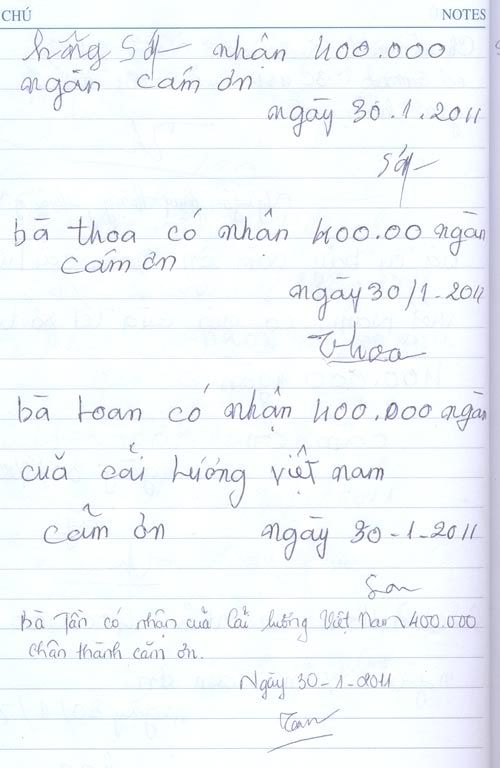 CHÚ NOTES
hãng Sáy nhận 400.000
ngàn cám ơn
ngày 30.1.2011
Sáy
bà thoa có nhận 400.00 ngàn
cám ơn
ngày 30/1-2011
Thoa
bà toan có nhận 400.000 ngàn
cuả cải lương việt nam
cẫm ơn ngày 30-1-2011
Bà Tần có nhận của Cải lương Việt Nam 400.000
chân thành cảm ơn.
Ngày 30-1-2011